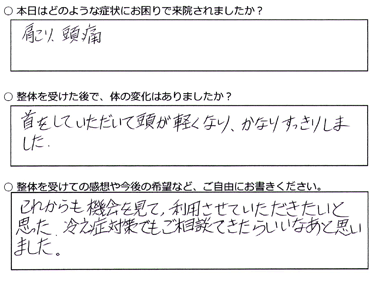 ○ 本日はどのような症状にお困りで来院されましたか？
肩こり、頭痛
○ 整体を受けた後で、体の変化はありましたか？
首をしていただいて頭が軽くなり、かなりすっきりしま
した.
○ 整体を受けての感想や今後の希望など、ご自由にお書きください。
これからも機会を見て,利用させていただきたいと
思った. 冷え症対策でもご相談できたらいいなあと思い
ました。